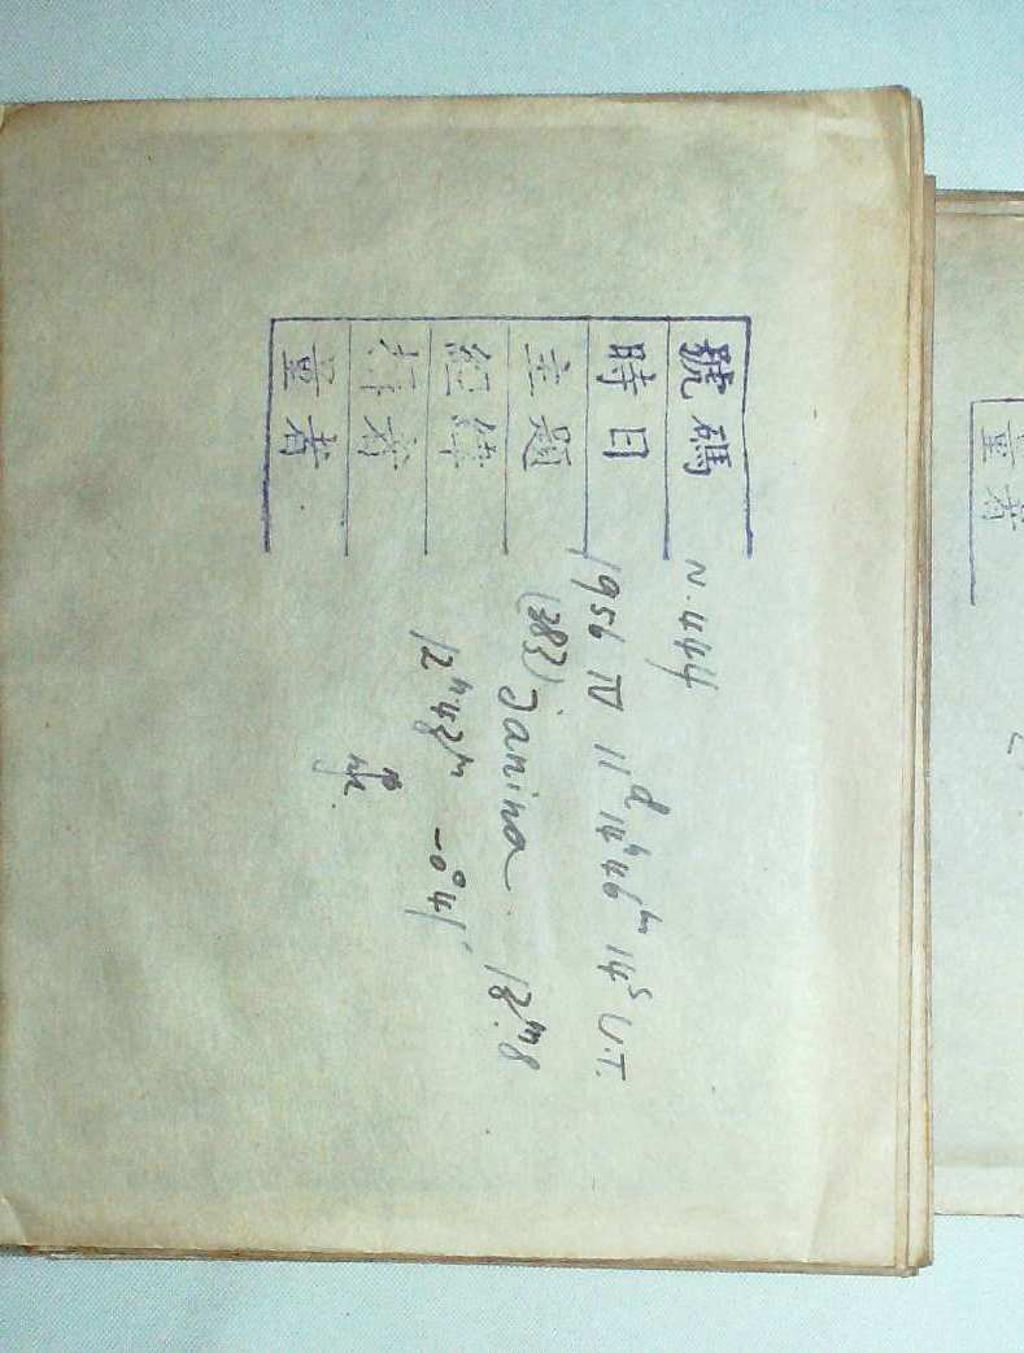 號碼 N.444
時日 1956 IV 11ᵈ 14ʰ46ᵐ 14ˢ U.T.
主題 (383) Janina 13ᵐ.8
經緯 12ʰ43ᵐ -0°41′
者
量者
量者